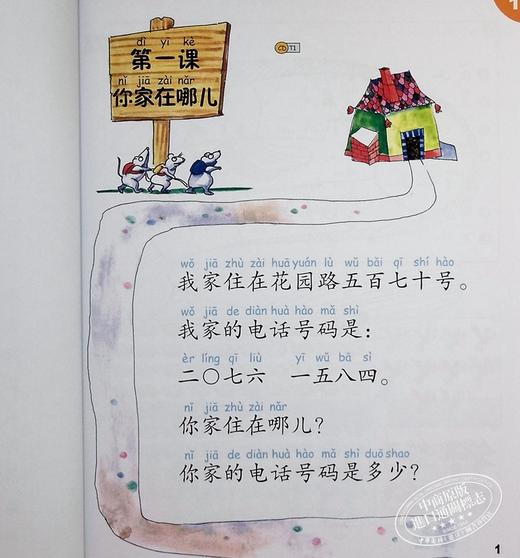 1
dì yī kè
第一课
nǐ jiā zài nǎr
你家在哪儿
CD T1
wǒ jiā zhù zài huāyuán lù wǔ bǎi qī shí hào
我家住在花园路五百七十号。
wǒ jiā de diàn huà hào mǎ shì
我家的电话号码是：
èr líng qī liù yī wǔ bā sì
二〇七六 一五八四。
nǐ jiā zhù zài nǎr
你家住在哪儿？
nǐ jiā de diàn huà hào mǎ shì duō shao
你家的电话号码是多少？
中商原版
进口通关标志
1